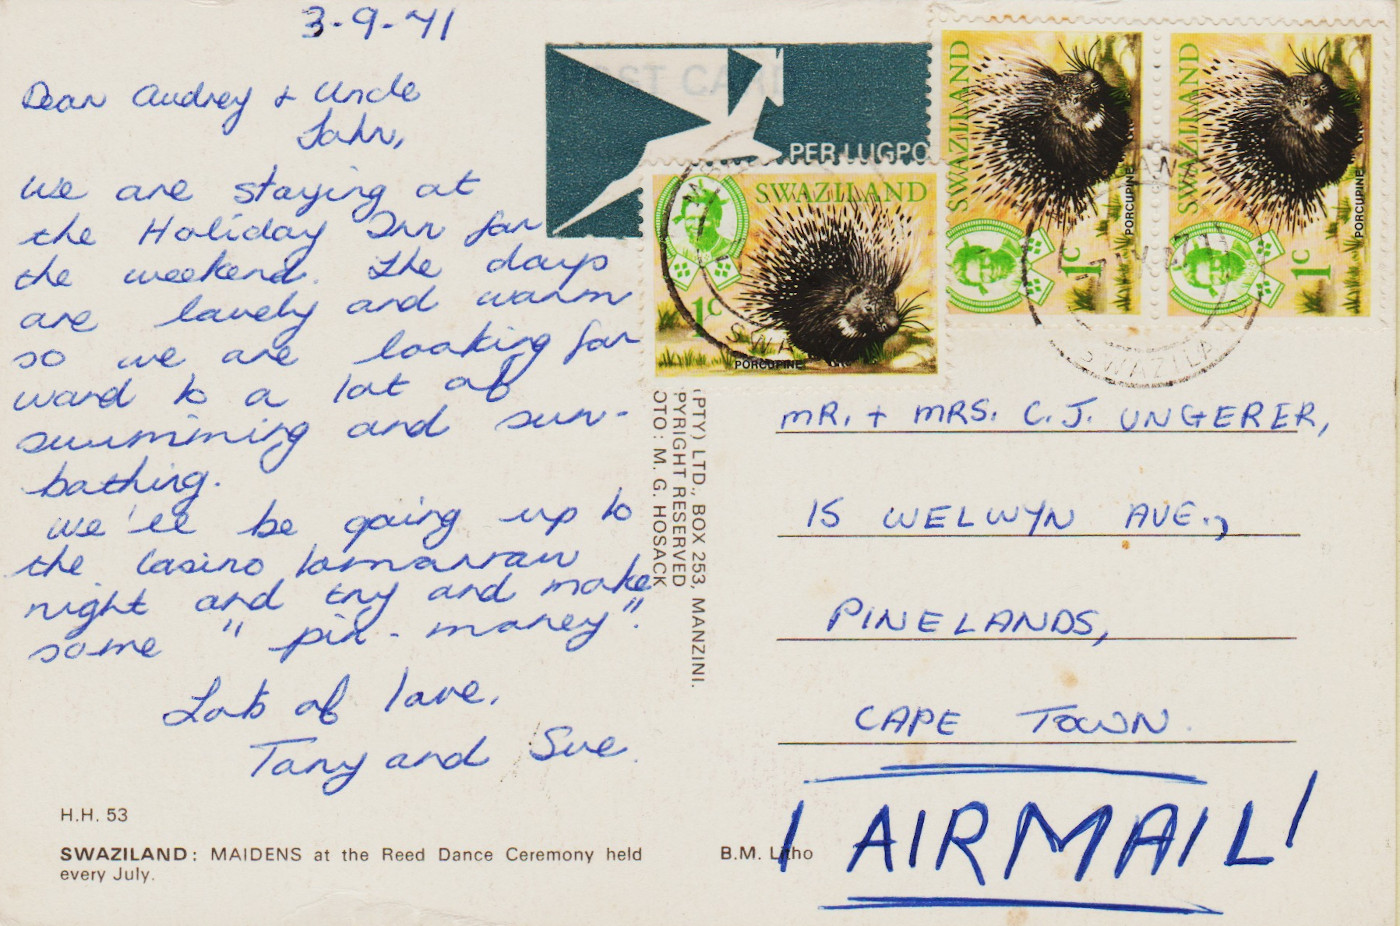 3-9-71
Dear Audrey + Uncle
John,
We are staying at
the Holiday Inn for
the weekend. The days
are lovely and warm
so we are looking for
ward to a lot of
swimming and sun-
bathing.
We'll be going up to
the Casino tomorrow
night and try and make
some "pin-money".
Lots of love,
Tony and Sue.
H.H. 53
SWAZILAND: MAIDENS at the Reed Dance Ceremony held
every July.
POST CARD
PER LUGPO
SWAZILAND
1c
PORCUPINE
SWAZILAND
1c
PORCUPINE
SWAZILAND
1c
PORCUPINE
SWAZILA
(PTY) LTD., BOX 253, MANZINI.
PYRIGHT RESERVED
OTO: M. G. HOSACK
MR. + MRS. C.J. UNGERER,
15 WELWYN AVE.,
PINELANDS,
CAPE TOWN.
! AIRMAIL !
B.M. Litho